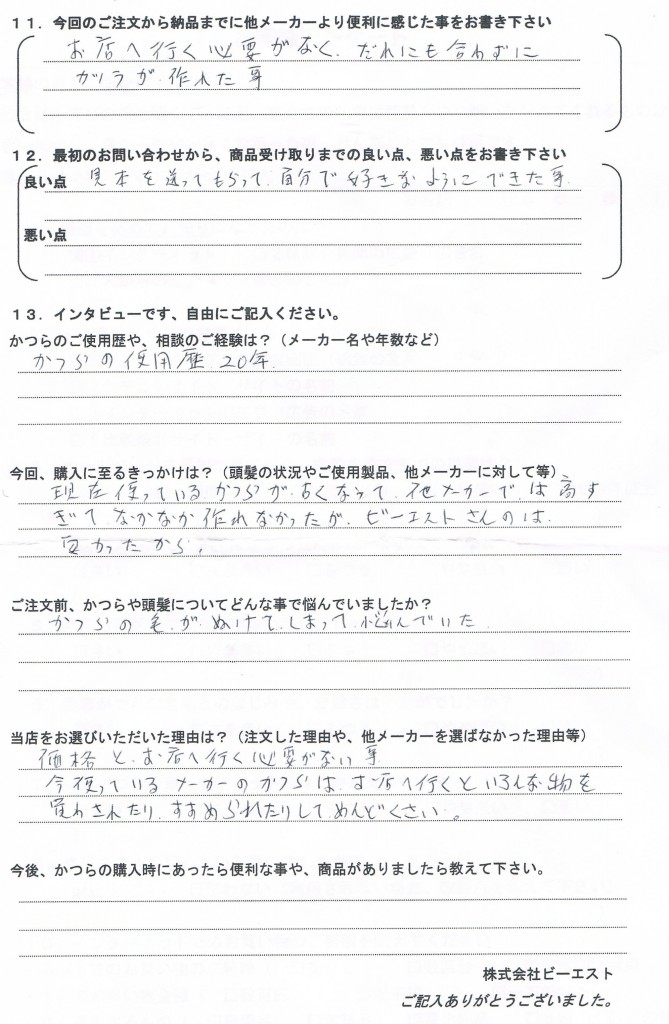 11．今回のご注文から納品までに他メーカーより便利に感じた事をお書き下さい
お店へ行く必要がなく、だれにも合わずに
カツラが作れた事
12．最初のお問い合わせから、商品受け取りまでの良い点、悪い点をお書き下さい
良い点 見本を送ってもらって、自分で好きなようにできた事
悪い点
13．インタビューです、自由にご記入ください。
かつらのご使用歴や、相談のご経験は？（メーカー名や年数など）
かつらの使用歴 20年
今回、購入に至るきっかけは？（頭髪の状況やご使用製品、他メーカーに対して等）
現在使っているかつらが古くなって、他メーカーでは高す
ぎて、なかなか作れなかったが、ビーエストさんのは
安かったから。
ご注文前、かつらや頭髪についてどんな事で悩んでいましたか？
かつらの毛がぬけてしまって悩んでいた
当店をお選びいただいた理由は？（注文した理由や、他メーカーを選ばなかった理由等）
価格と、お店へ行く必要がない事
今使っているメーカーのかつらは、お店へ行くといろんな物を
買わされたり、すすめられたりしてめんどくさい。
今後、かつらの購入時にあったら便利な事や、商品がありましたら教えて下さい。
株式会社ビーエスト
ご記入ありがとうございました。